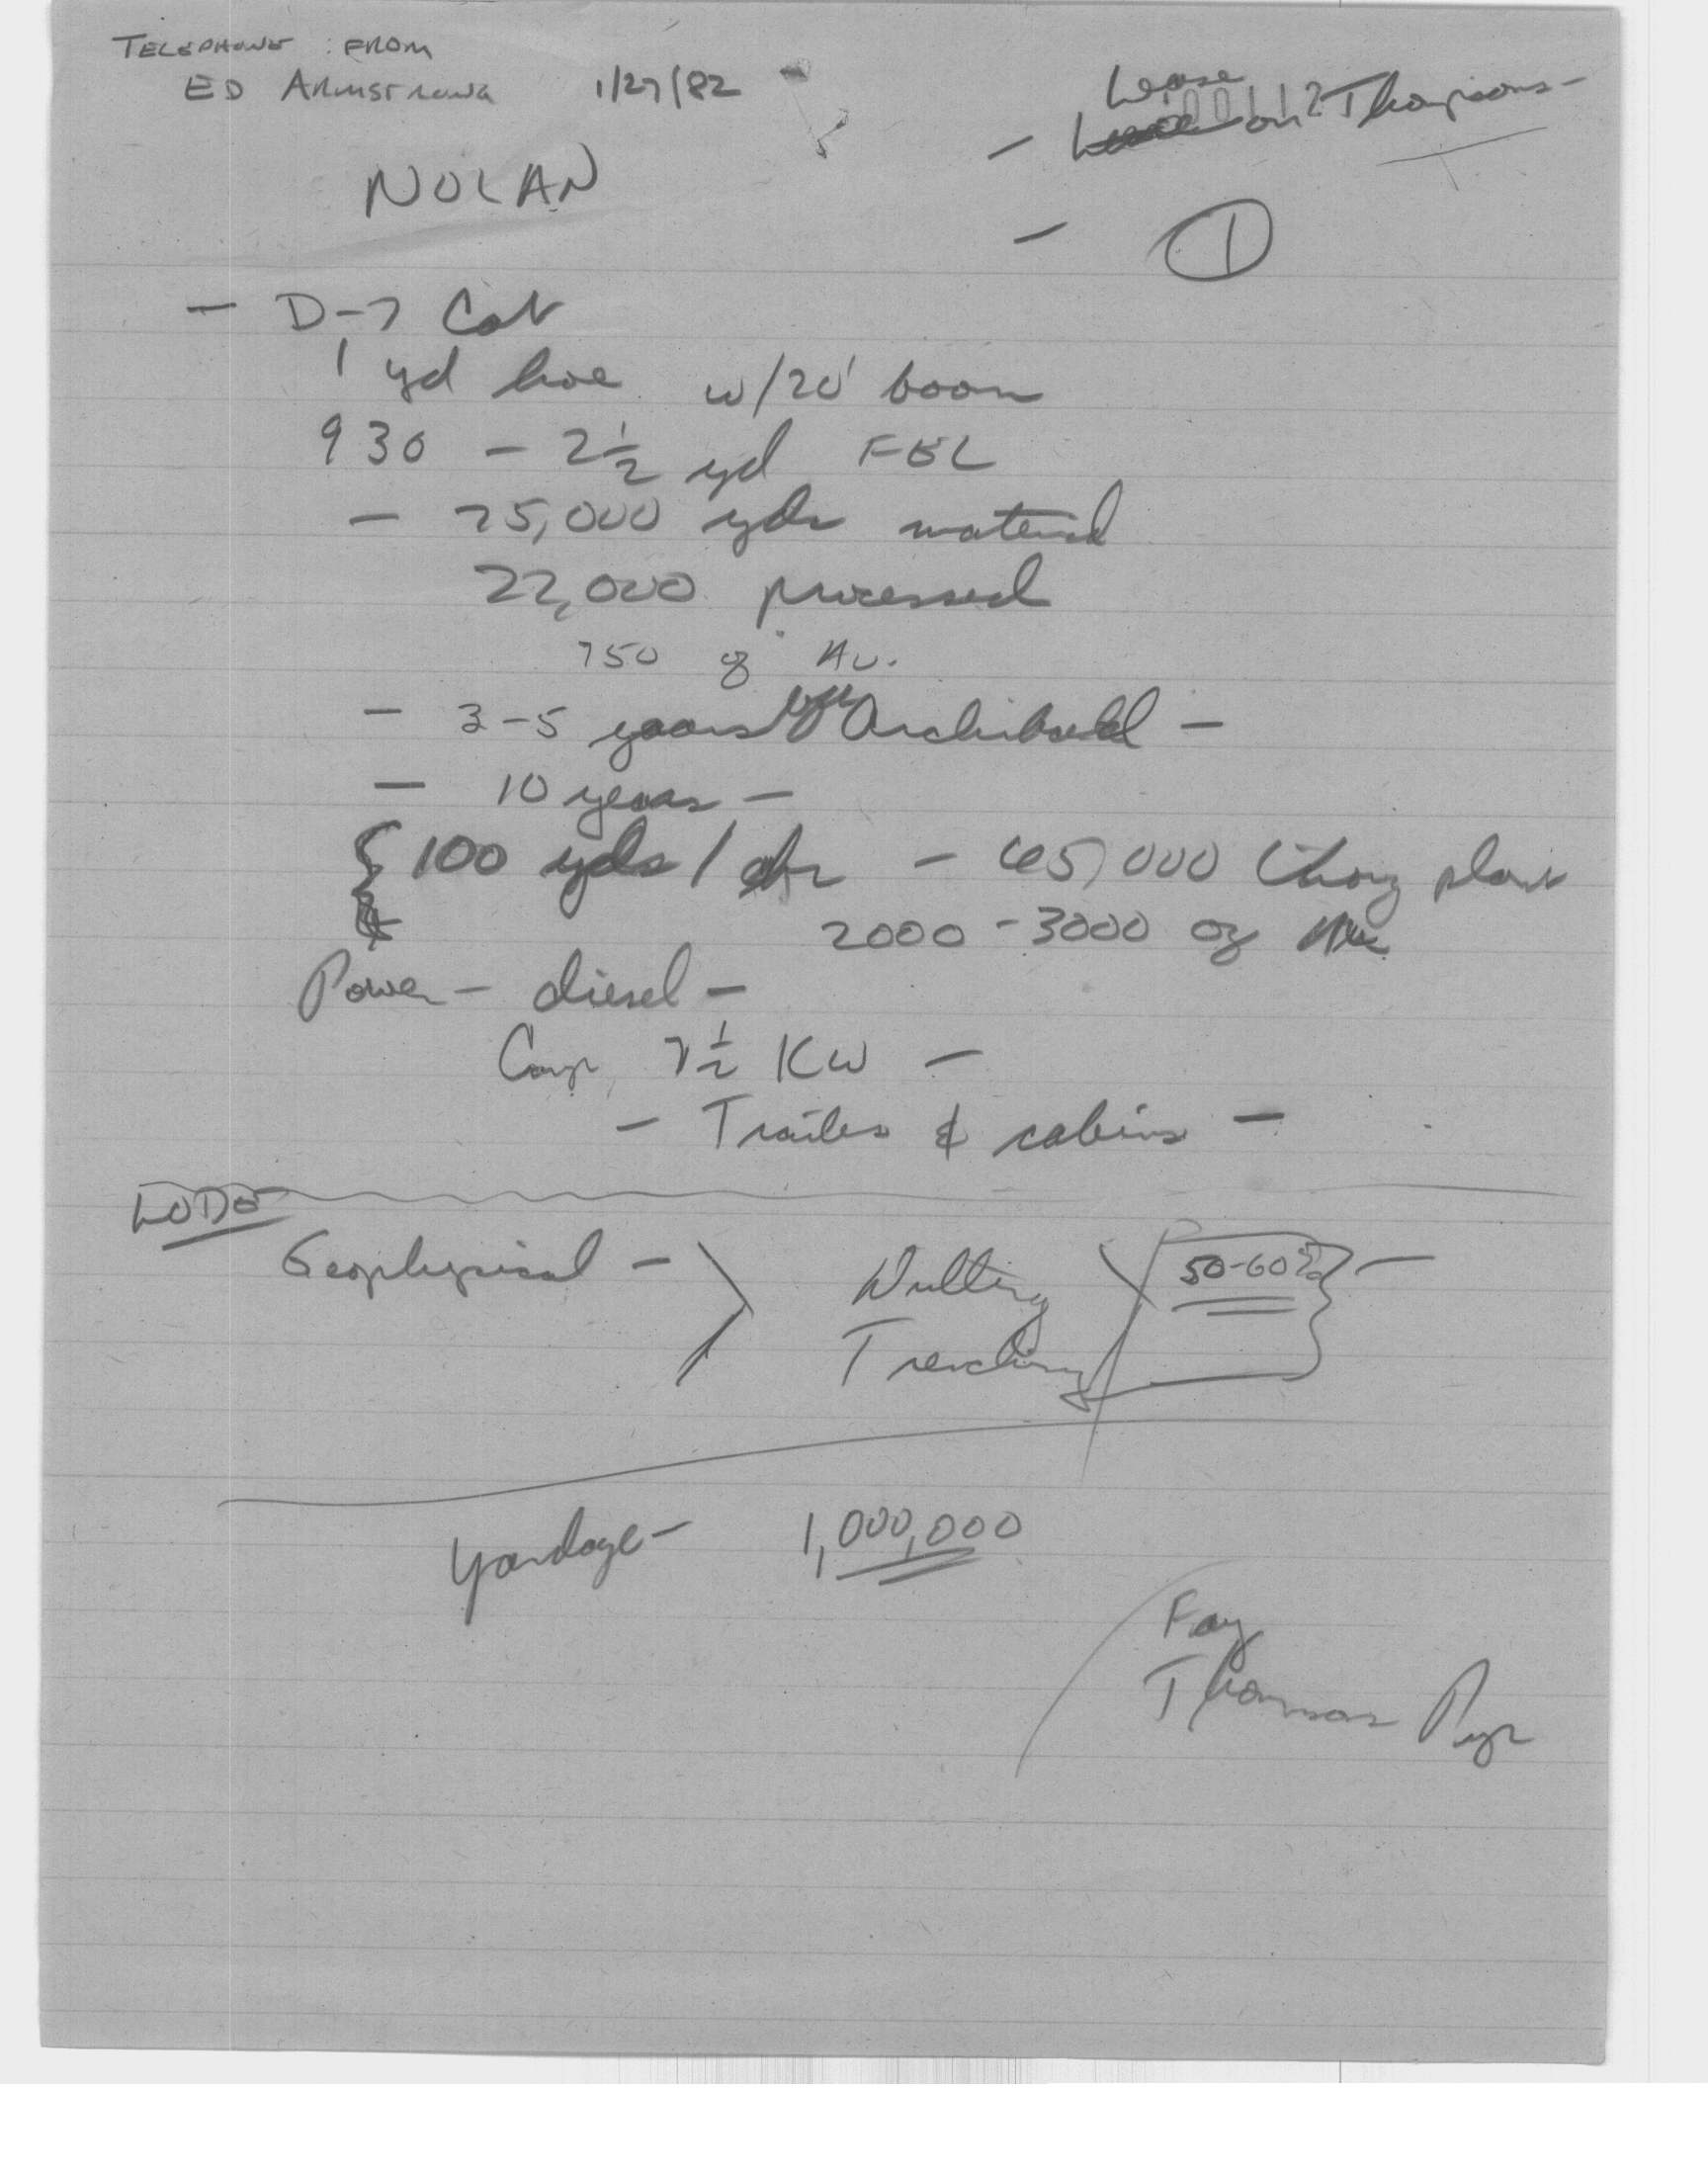 TELEPHONE : FROM
ED ARMSTRONG 1/27/82
Lease
- on Thompsons -
NOLAN
- 1
- D-7 Cat
1 yd hoe w/20' boom
930 - 2 1/2 yd FEL
- 75,000 yds material
22,000 processed
750 oz Au.
- 3-5 years Archibald -
- 10 years -
{ 100 yds / hr - 65,000 plant
2000 - 3000 oz
Power - diesel -
Camp 7 1/2 KW -
- Trailer & cabins -
LODE
Geophysical - Drilling 50-60%
Trenching
Yardage - 1,000,000
Fay
Thomas